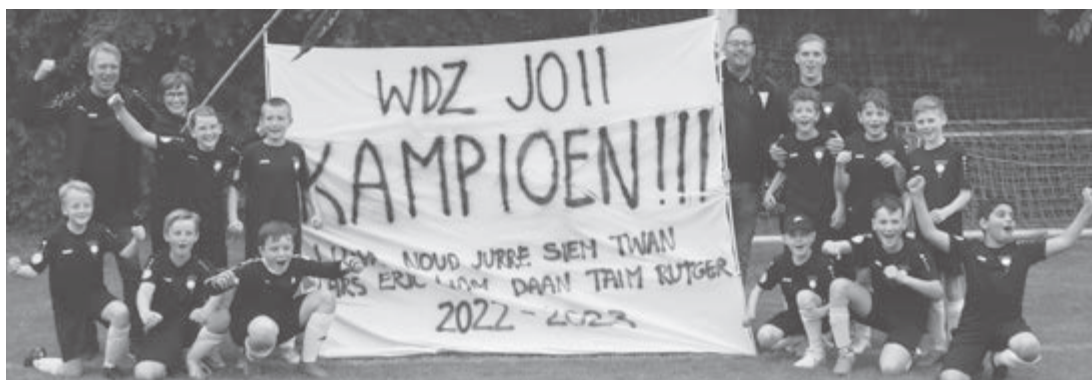 WDZ JO11
KAMPIOEN!!!
NOUD JURRE SIEM TWAN
ERIC DAAN TAIM RUTGER
2022-2023